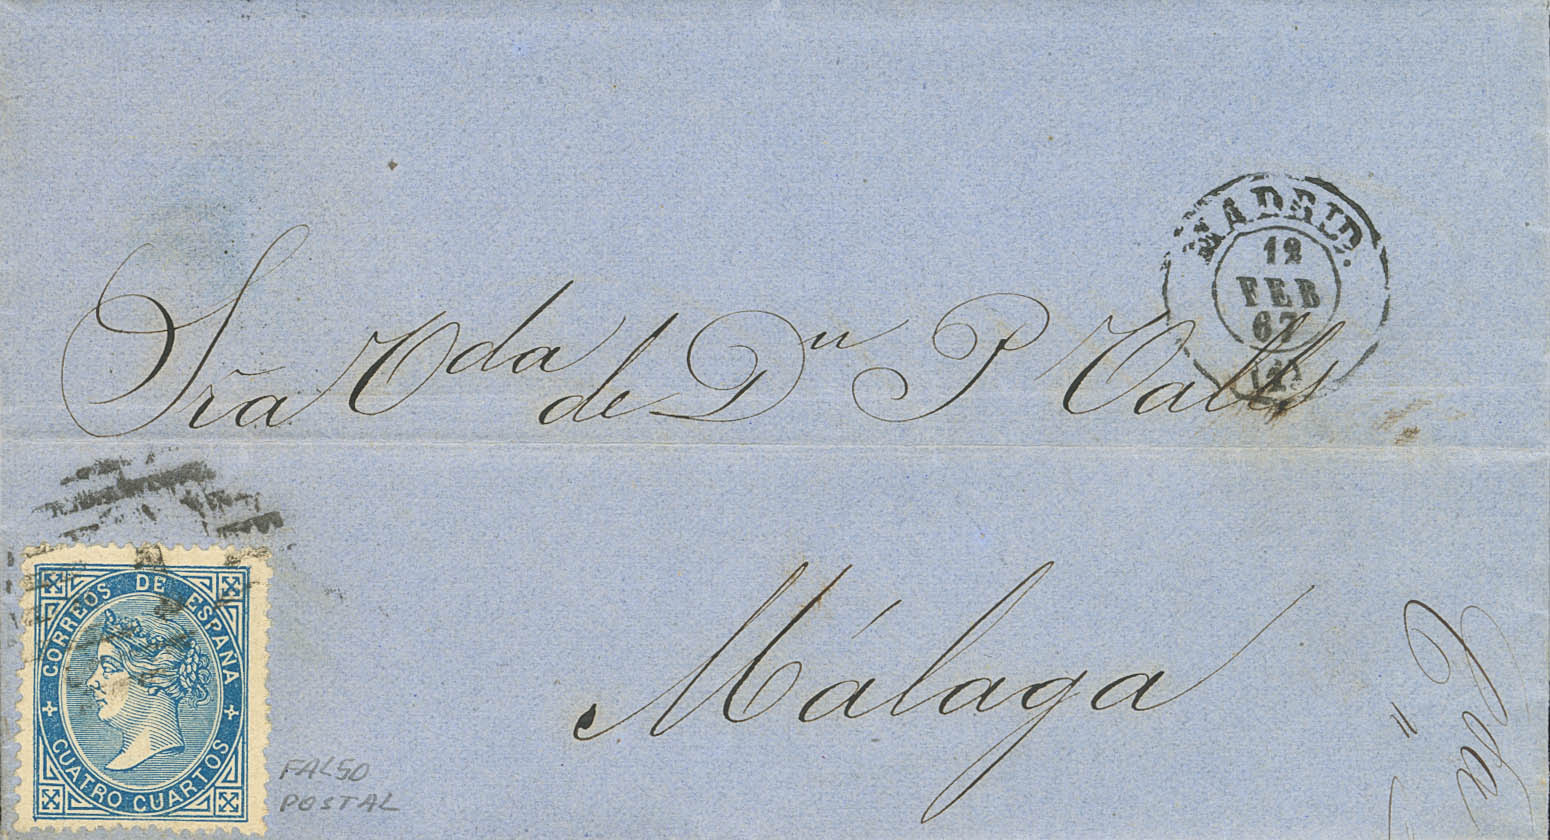 MADRID.
12
FEB
67
(1)
Sra Vda de Dn P Valls
Málaga
CORREOS DE ESPAÑA
CUATRO CUARTOS
FALSO
POSTAL